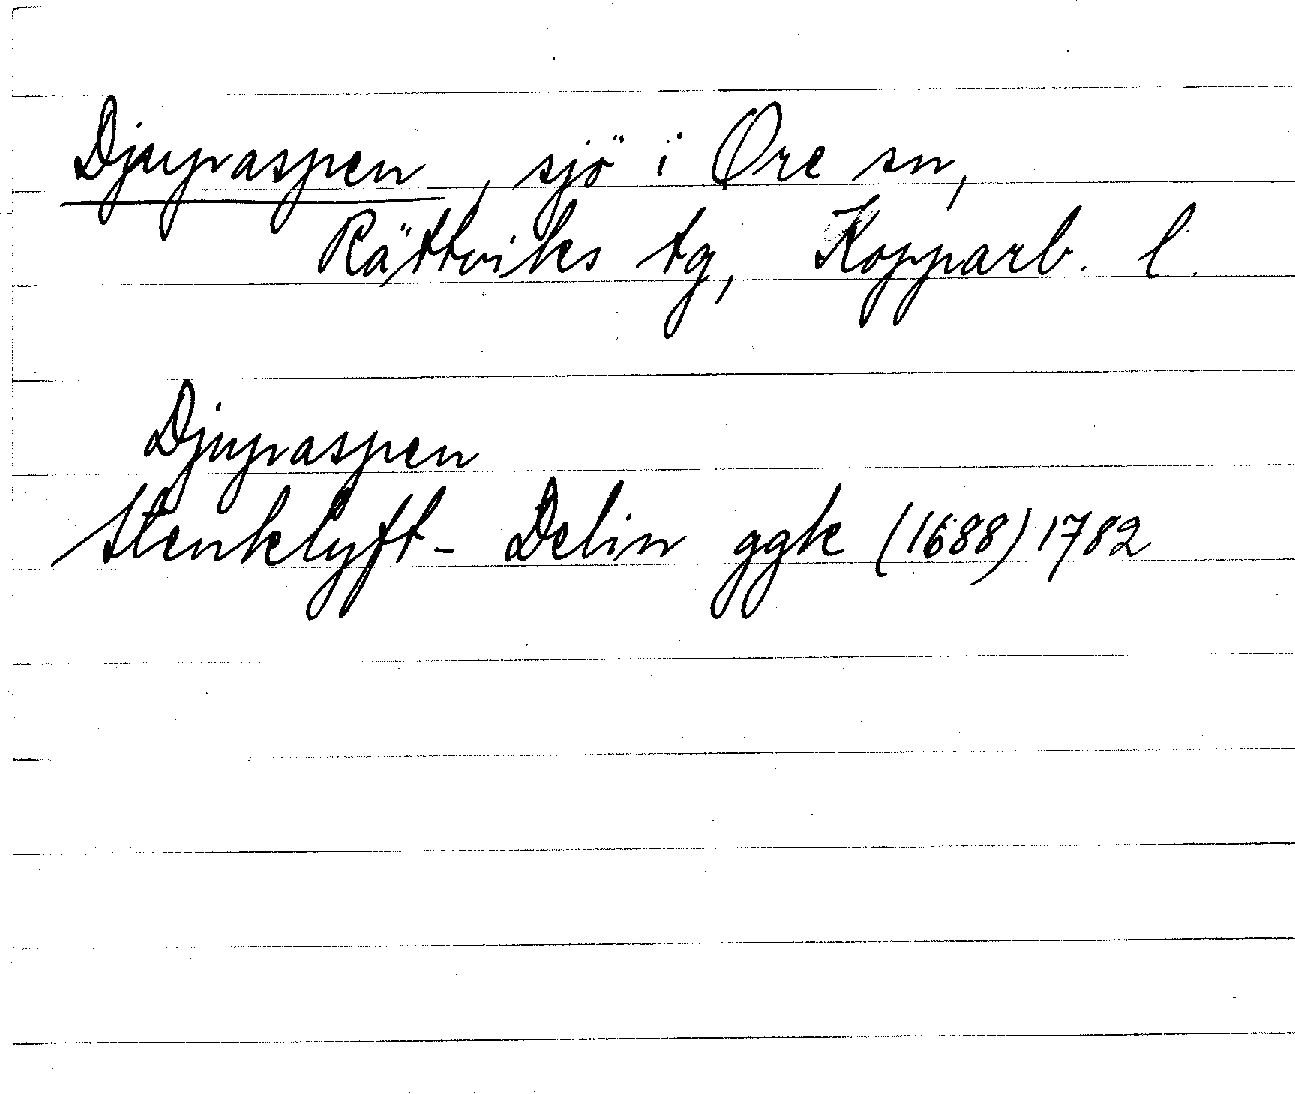 Djupraspen, sjö i Øre sn,
Rättviks tg, Kopparb. l.
Djupraspen
Stenklyft- Delin ggk (1688) 1782